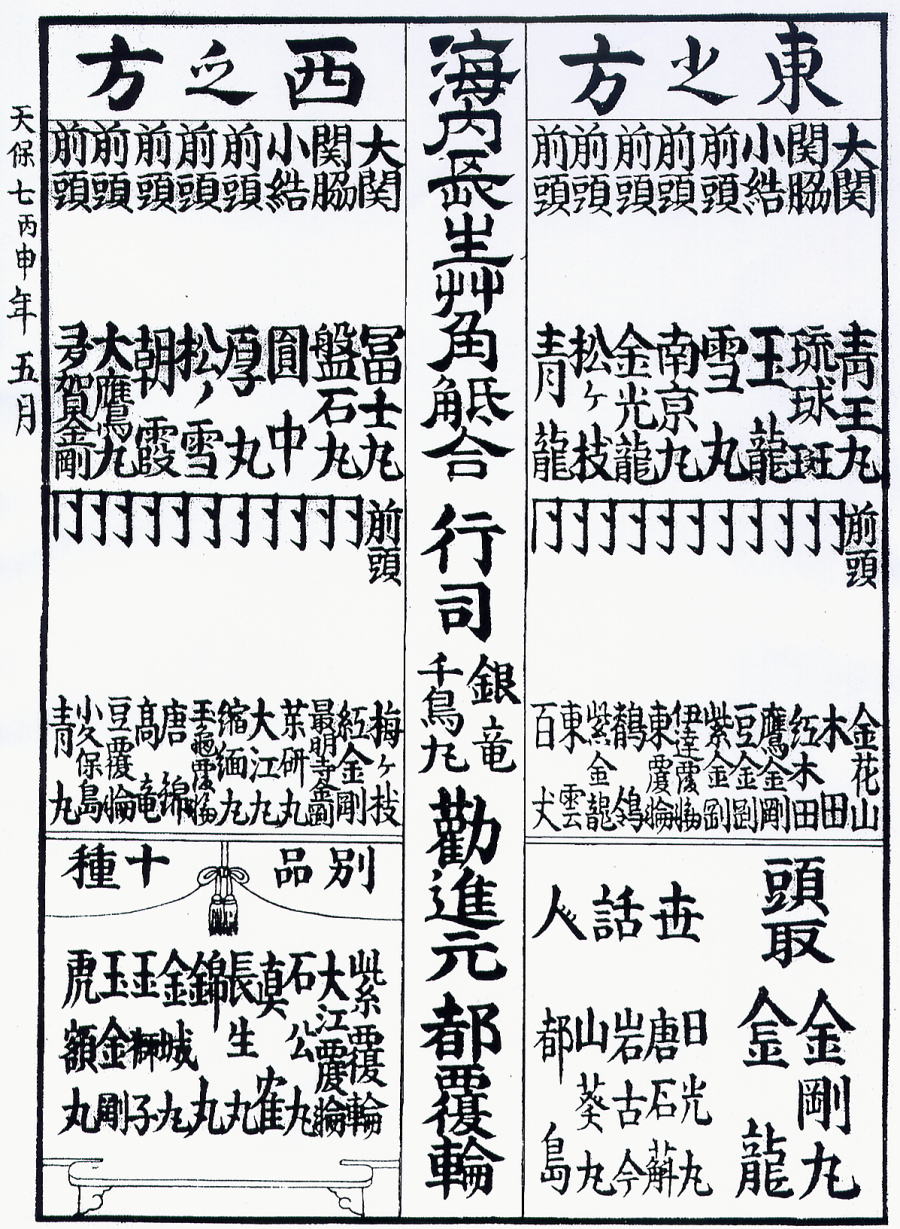 東之方
大関 青王丸
関脇 琉球斑
小結 玉龍
前頭 雪丸
前頭 南京丸
前頭 金光龍
前頭 松ヶ枝
前頭 青龍
前頭 金花山
同 木田
同 紅木田
同 鷹金剛
同 豆金剛
同 紫金剛
同 伊達覆輪
同 東覆輪
同 鶺鴒
同 紫金龍
同 東雲
同 百丈
頭取
金剛丸
金龍
世話人
日光丸
唐石斛
岩古今
山葵丸
都島
海内長生艸角觝合
行司
銀竜
千鳥丸
勸進元
都覆輪
西之方
大関 冨士丸
関脇 盤石丸
小結 圓中
前頭 厚丸
前頭 松ノ雪
前頭 朝霞
前頭 大鷹丸
前頭 賀金剛
前頭 梅ヶ枝
同 紅金剛
同 最明寺金剛
同 研丸
同 大江丸
同 縮緬丸
同 玉龜覆輪
同 唐錦
同 高竜
同 豆覆輪
同 小久保島
同 青丸
別品十種
紫覆輪
大江覆輪
石公丸
真雀
長生丸
錦丸
金城丸
玉獅子
玉金剛
虎額丸
天保七丙申年五月